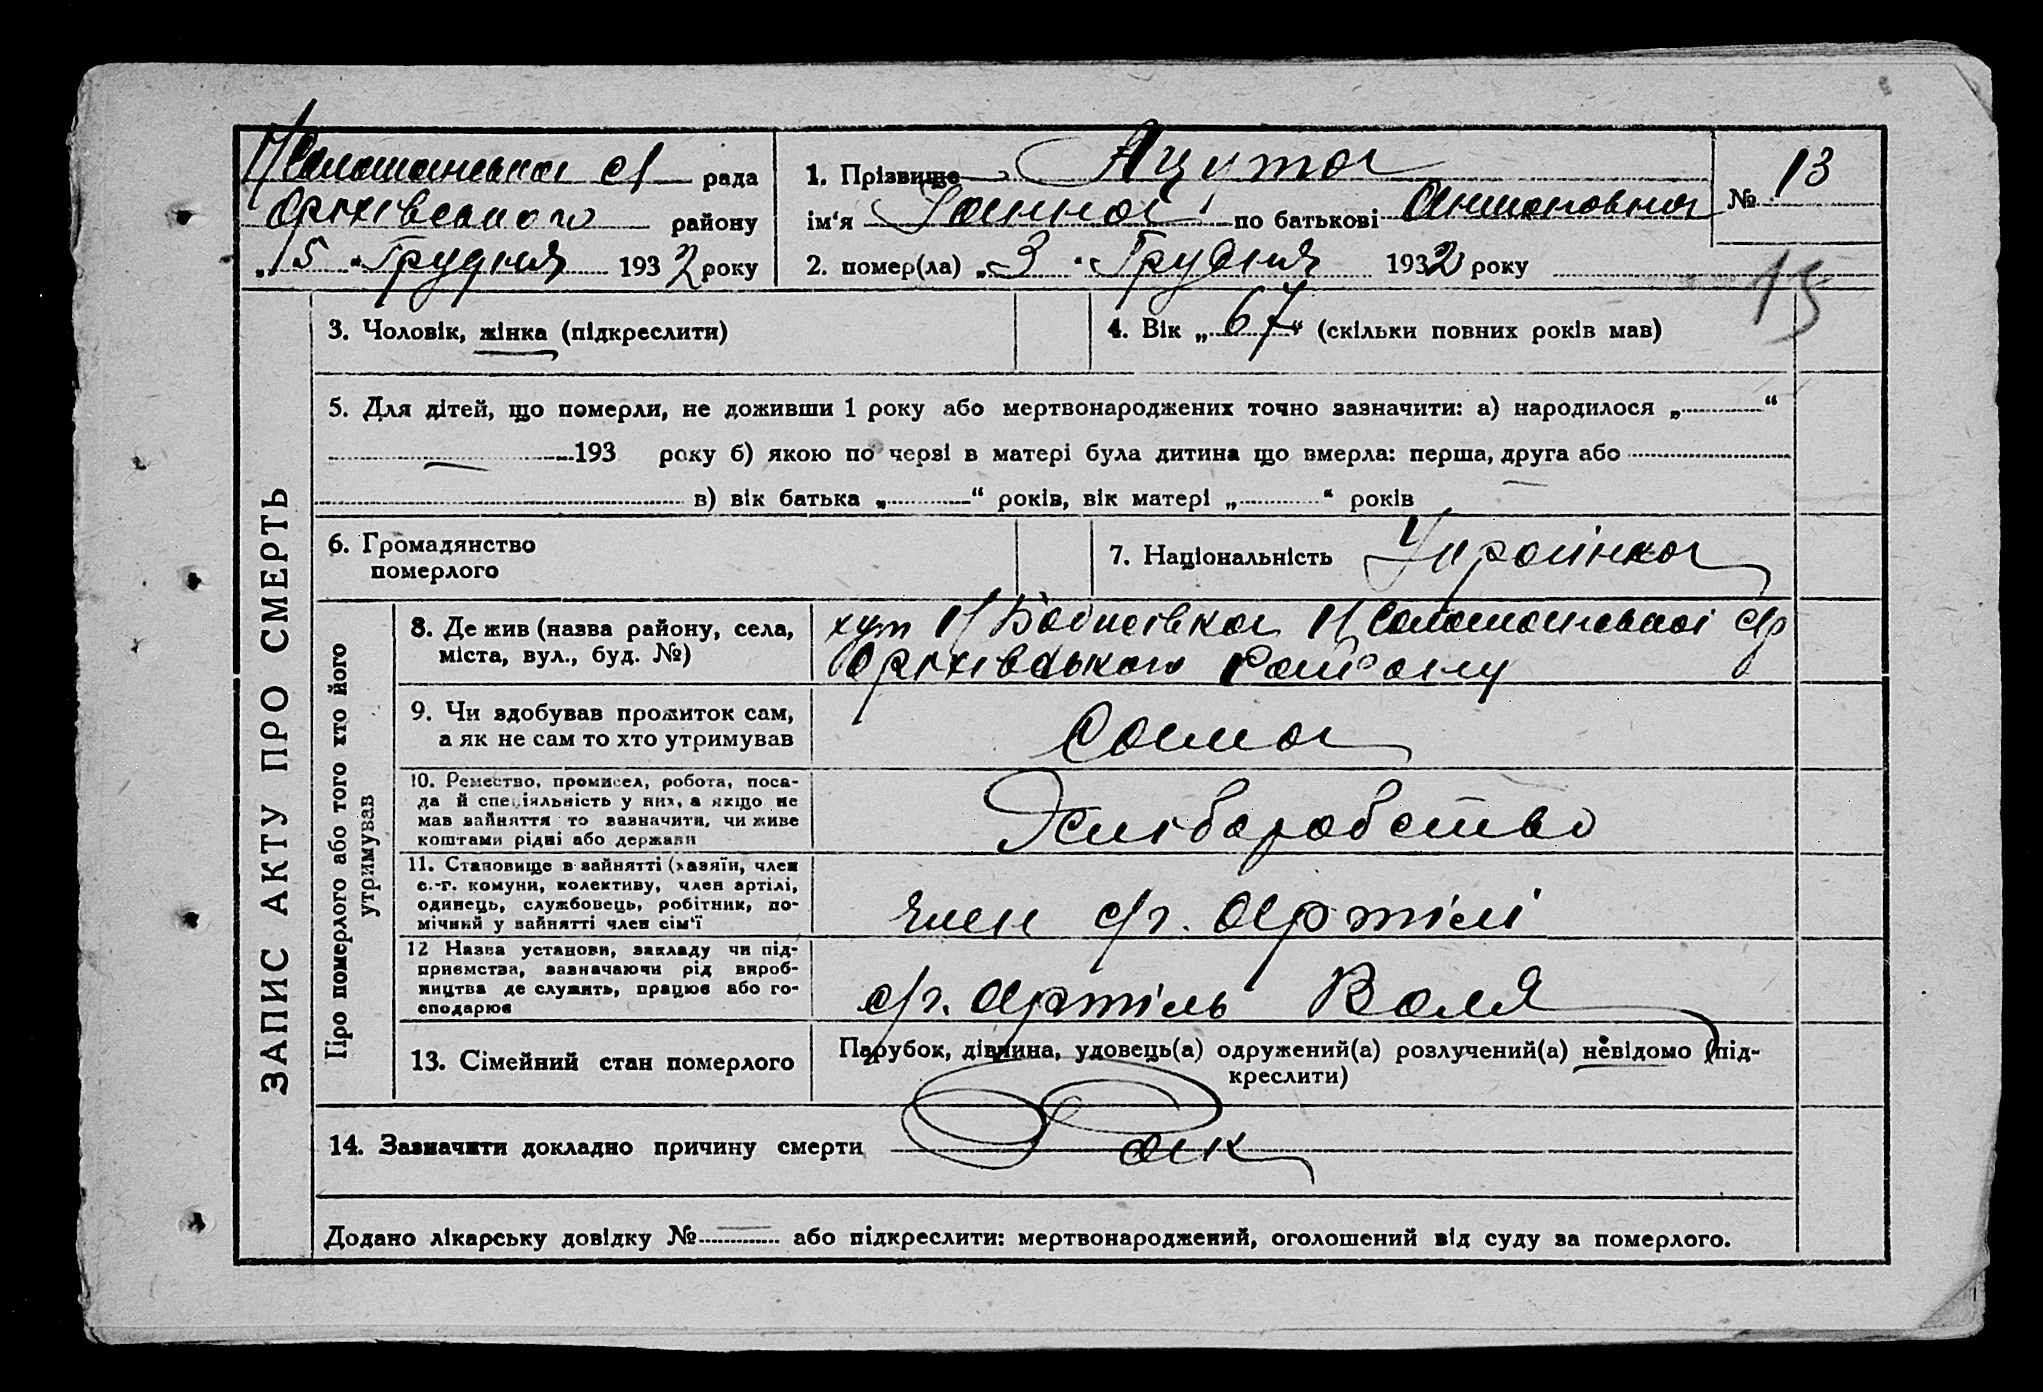 Н/Саломанська с/ рада
Оріхівського району
"5" Грудня 1932 року
1. Прізвище Ацута
ім'я Ганна по батькові Антоновна
2. помер(ла) "3" Грудня 1932 року
№ 13
15
3. Чоловік, жінка (підкреслити)
4. Вік „67" (скільки повних років мав)
5. Для дітей, що померли, не доживши 1 року або мертвонароджених точно зазначити: а) народилося „ “
193 року б) якою по черзі в матері була дитина що вмерла: перша, друга або
в) вік батька „ “ років, вік матері „ “ років
6. Громадянство
померлого
7. Національність Українка
ЗАПИС АКТУ ПРО СМЕРТЬ
Про померлого або того хто його
утримував
8. Де жив (назва району, села,
міста, вул., буд. №)
хут Н/ с/р
Оріхівського району
9. Чи здобував прожиток сам,
а як не сам то хто утримував
Сама
10. Ремество, промисел, робота, поса-
да й спеціяльність у них, а якщо не
мав зайняття то зазначити, чи живе
коштами рідні або держави
Хліборобство
11. Становище в зайнятті (хазяїн, член
с.-г. комуни, колективу, член артілі,
одинець, службовець, робітник, по-
мічний у зайнятті член сім'ї
член с/г. артілі
12 Назва установи, закладу чи під-
приємства, зазначаючи рід вироб-
ництва де служить, працює або го-
сподарює
с/г. артіль Воля
13. Сімейний стан померлого
Парубок, дівчина, удовець(а) одружений(а) розлучений(а) невідомо (під-
креслити)
14. Зазначити докладно причину смерти Рак
Додано лікарську довідку № — або підкреслити: мертвонароджений, оголошений від суду за померлого.